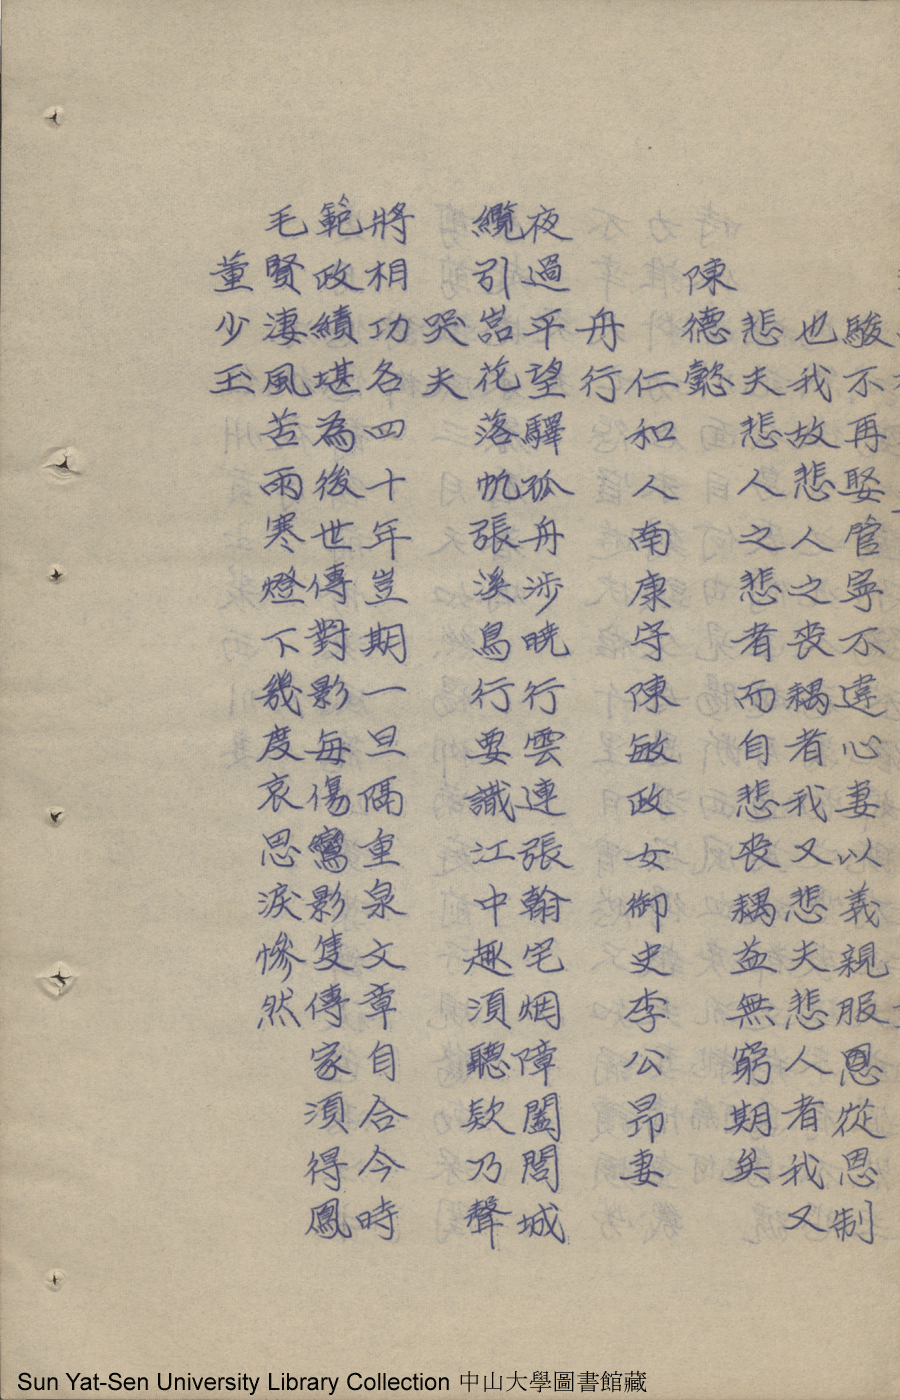 駿不再娶管寧不違心妻以義親服恩從思制
也我故悲人之丧耦者我又悲夫悲人者我又
悲夫悲人之悲者而自悲丧耦益無窮期矣
陳德懿
仁和人南康守陳敏政女御史李公昂妻
舟行
夜過平望驛孤舟涉曉行雲連張翰宅烟障闔閭城
纜引岩花落帆張溪鳥行要識江中趣須聽欸乃聲
哭夫
將相功名四十年豈期一旦隔重泉文章自合今時
範政績堪為後世傳對影每傷鸞影隻傳家須得鳳
毛賢凄風苦雨寒燈下幾度哀思淚慘然
董少玉
Sun Yat-Sen University Library Collection 中山大學圖書館藏